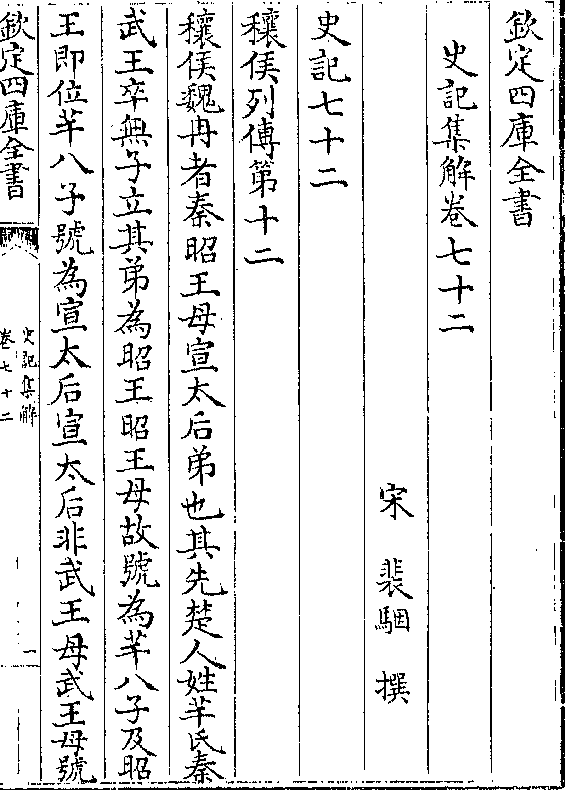 欽定四庫全書
史記集解卷七十二
宋 裴駰 撰
史記七十二
穰侯列傳第十二
穰侯魏冉者秦昭王母宣太后弟也其先楚人姓芊氏秦
武王卒無子立其弟為昭王昭王母故號為芊八子及昭
王即位芊八子號為宣太后宣太后非武王母武王母號
欽定四庫全書
史記集解
卷七十二
一